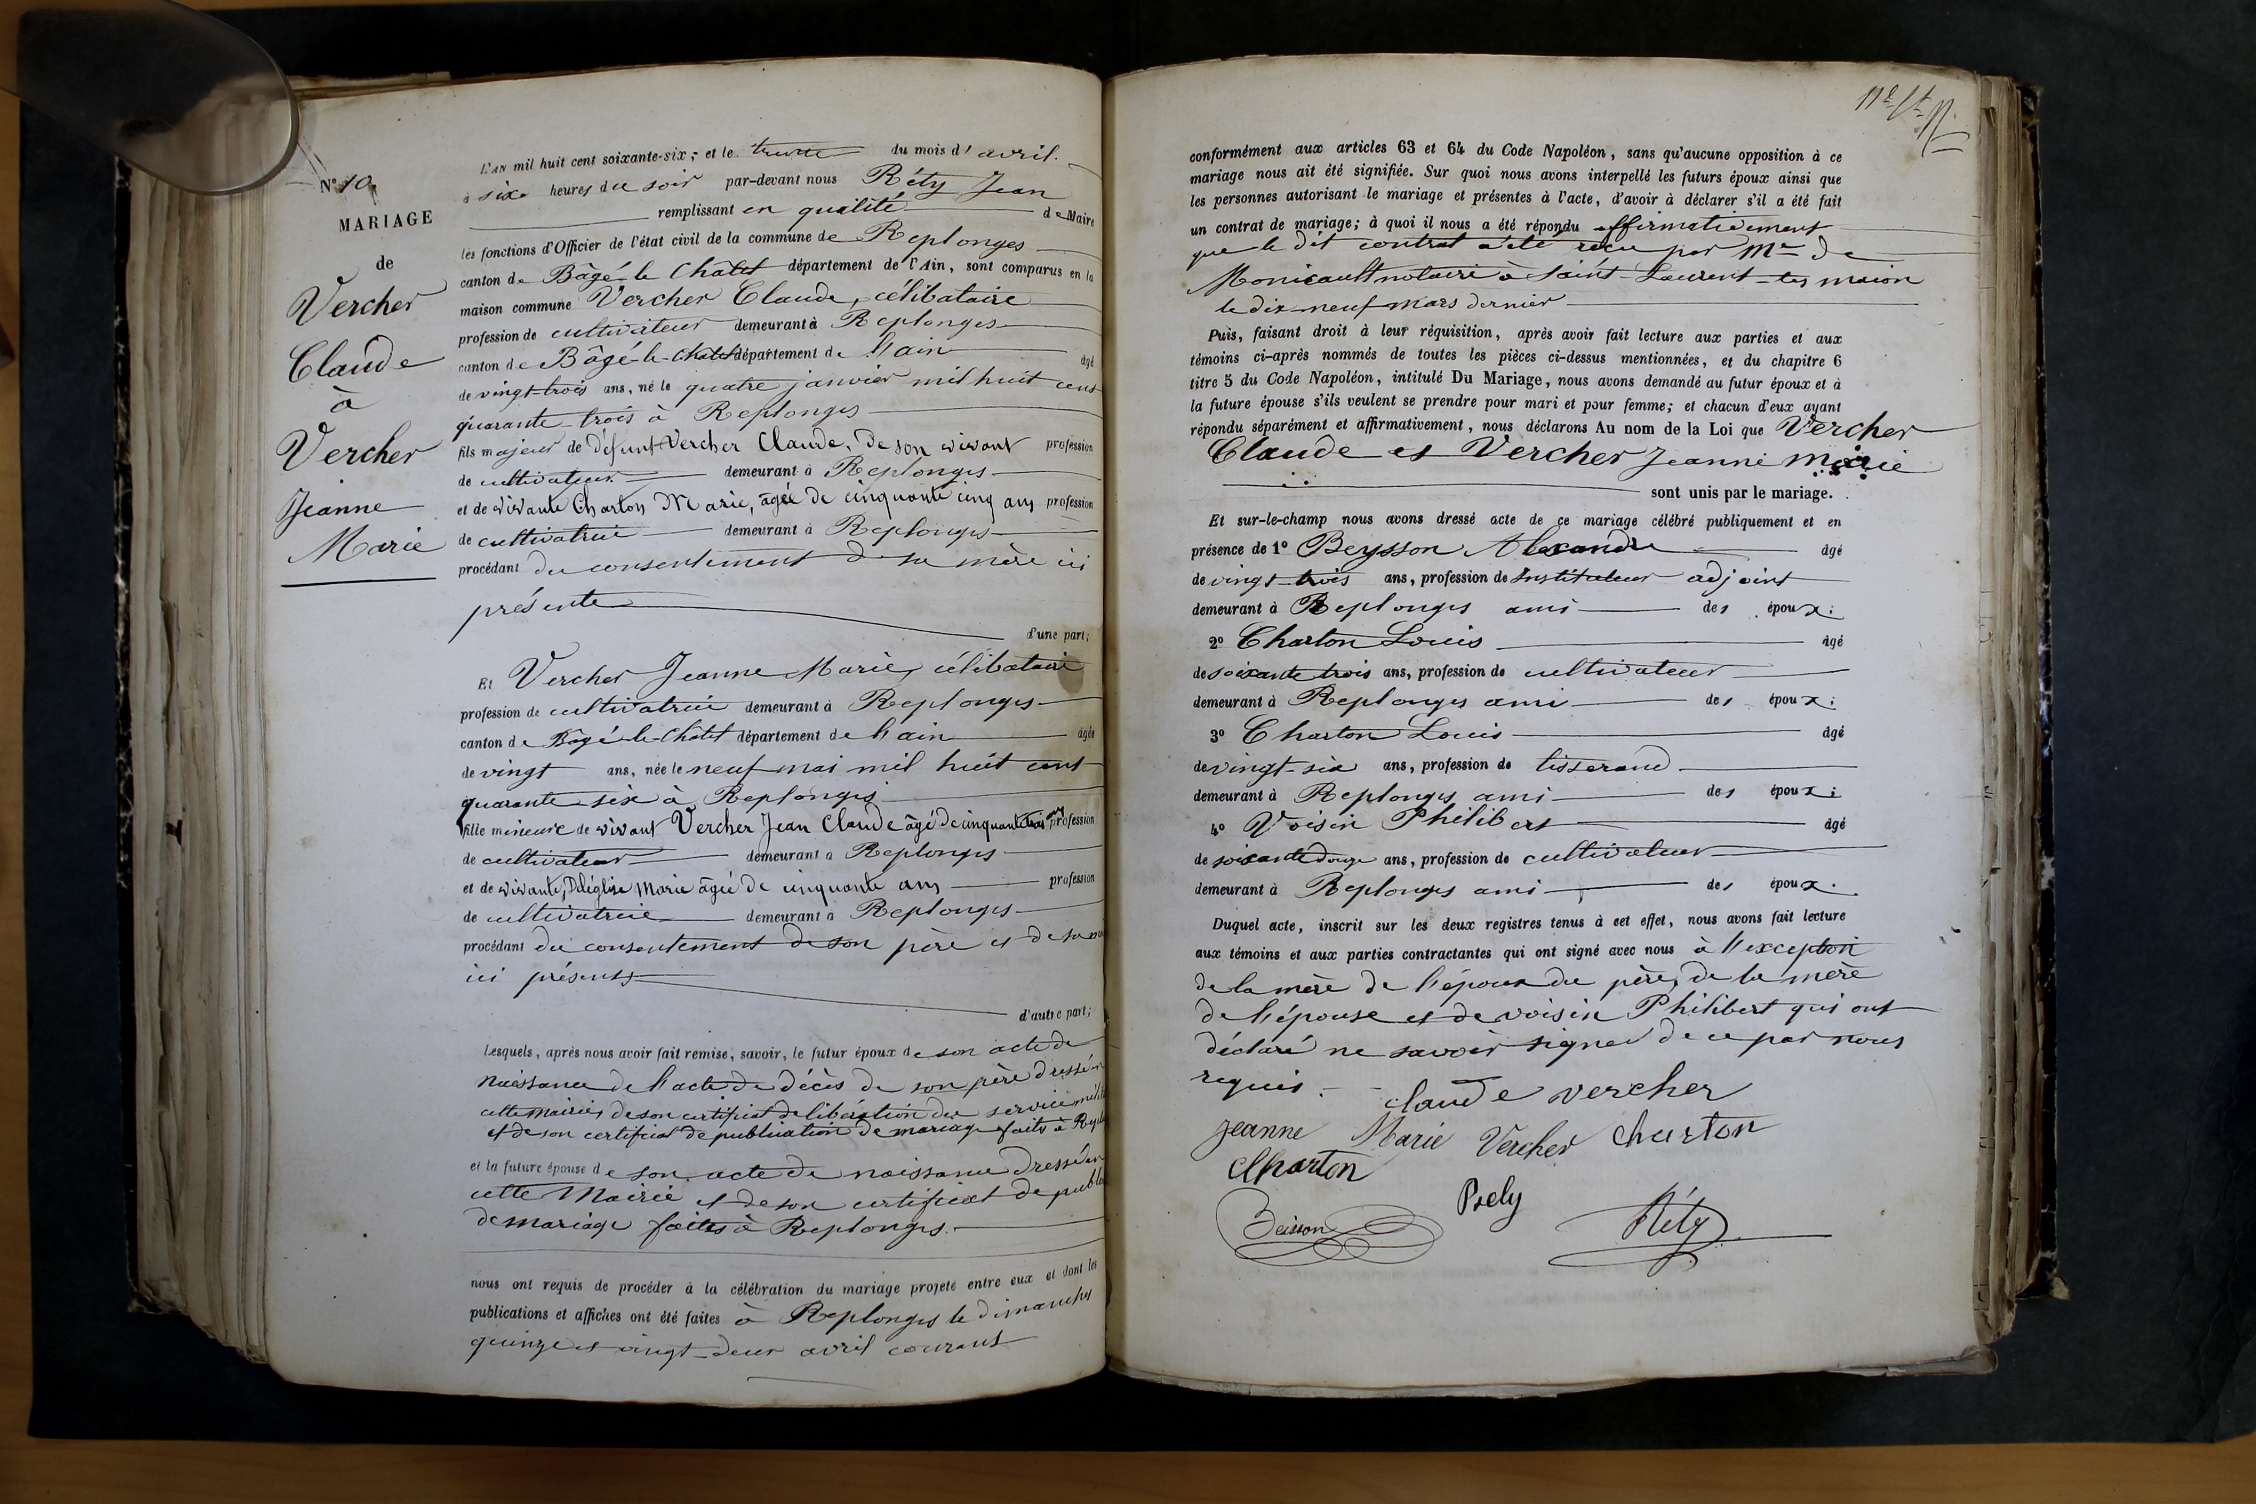 N° 10
MARIAGE
de
Vercher
Claude
à
Vercher
Jeanne
Marie
L'AN mil huit cent soixante-six; et le trente du mois d'avril
à six heures du soir par-devant nous Réty Jean
remplissant en qualité de Maire
les fonctions d'Officier de l'état civil de la commune de Replonges
canton de Bâgé-le-Châtel département de l'Ain, sont comparus en la
maison commune Vercher Claude, célibataire
profession de cultivateur demeurant à Replonges
canton de Bâgé-le-Châtel département de l'ain âgé
de vingt-trois ans, né le quatre janvier mil huit cent
quarante-trois à Replonges
fils majeur de défunt Vercher Claude, de son vivant profession
de cultivateur demeurant à Replonges
et de vivante Charton Marie, âgée de cinquante cinq ans profession
de cultivatrice demeurant à Replonges
procédant du consentement de sa mère ici
présente
d'une part;
Et Vercher Jeanne Marie, célibataire
profession de cultivatrice demeurant à Replonges
canton de Bâgé-le-Châtel département de l'ain âgée
de vingt ans, née le neuf mai mil huit cent
quarante six à Replonges
fille mineure de vivant Vercher Jean Claude âgé de cinquante trois ans profession
de cultivateur demeurant à Replonges
et de vivante, Deléglise Marie âgée de cinquante ans profession
de cultivatrice demeurant à Replonges
procédant du consentement de son père et de sa
ici présents
d'autre part;
Lesquels, après nous avoir fait remise, savoir, le futur époux de son acte de
naissance de l'acte de décès de son père dressé en
cette mairie, de son certificat de libération du service
et de son certificat de publication de mariage faits à
et la future épouse de son acte de naissance dressé en
cette Mairie et de son certificat de
de mariage faites à Replonges.
nous ont requis de procéder à la célébration du mariage projeté entre eux et dont les
publications et affiches ont été faites à Replonges le dimanches
quinze et vingt-deux avril courant
conformément aux articles 63 et 64 du Code Napoléon, sans qu'aucune opposition à ce
mariage nous ait été signifiée. Sur quoi nous avons interpellé les futurs époux ainsi que
les personnes autorisant le mariage et présentes à l'acte, d'avoir à déclarer s'il a été fait
un contrat de mariage; à quoi il nous a été répondu affirmativement
que le dit contrat a été reçu par Me de
Monicault notaire à Saint-Laurent-les macon
le dix-neuf mars dernier
Puis, faisant droit à leur réquisition, après avoir fait lecture aux parties et aux
témoins ci-après nommés de toutes les pièces ci-dessus mentionnées, et du chapitre 6
titre 5 du Code Napoléon, intitulé Du Mariage, nous avons demandé au futur époux et à
la future épouse s'ils veulent se prendre pour mari et pour femme; et chacun d'eux ayant
répondu séparément et affirmativement, nous déclarons Au nom de la Loi que Vercher
Claude et Vercher Jeanne Marie
sont unis par le mariage.
Et sur-le-champ nous avons dressé acte de ce mariage célébré publiquement et en
présence de 1° Beysson Alexandre âgé
de vingt-trois ans, profession de Instituteur adjoint
demeurant à Replonges ami des époux;
2° Charton Louis âgé
de soixante trois ans, profession de cultivateur
demeurant à Replonges ami des époux;
3° Charton Louis âgé
de vingt-six ans, profession de tisserand
demeurant à Replonges ami des époux;
4° Voisin Philibert âgé
de soixante douze ans, profession de cultivateur
demeurant à Replonges ami des époux.
Duquel acte, inscrit sur les deux registres tenus à cet effet, nous avons fait lecture
aux témoins et aux parties contractantes qui ont signé avec nous à l'exception
de la mère de l'époux du père, de la mère
de l'épouse et de voisin Philibert qui ont
déclaré ne savoir signer de ce par nous
requis.
claude vercher
Jeanne Marie Vercher Charton
Charton
Beisson
Réty